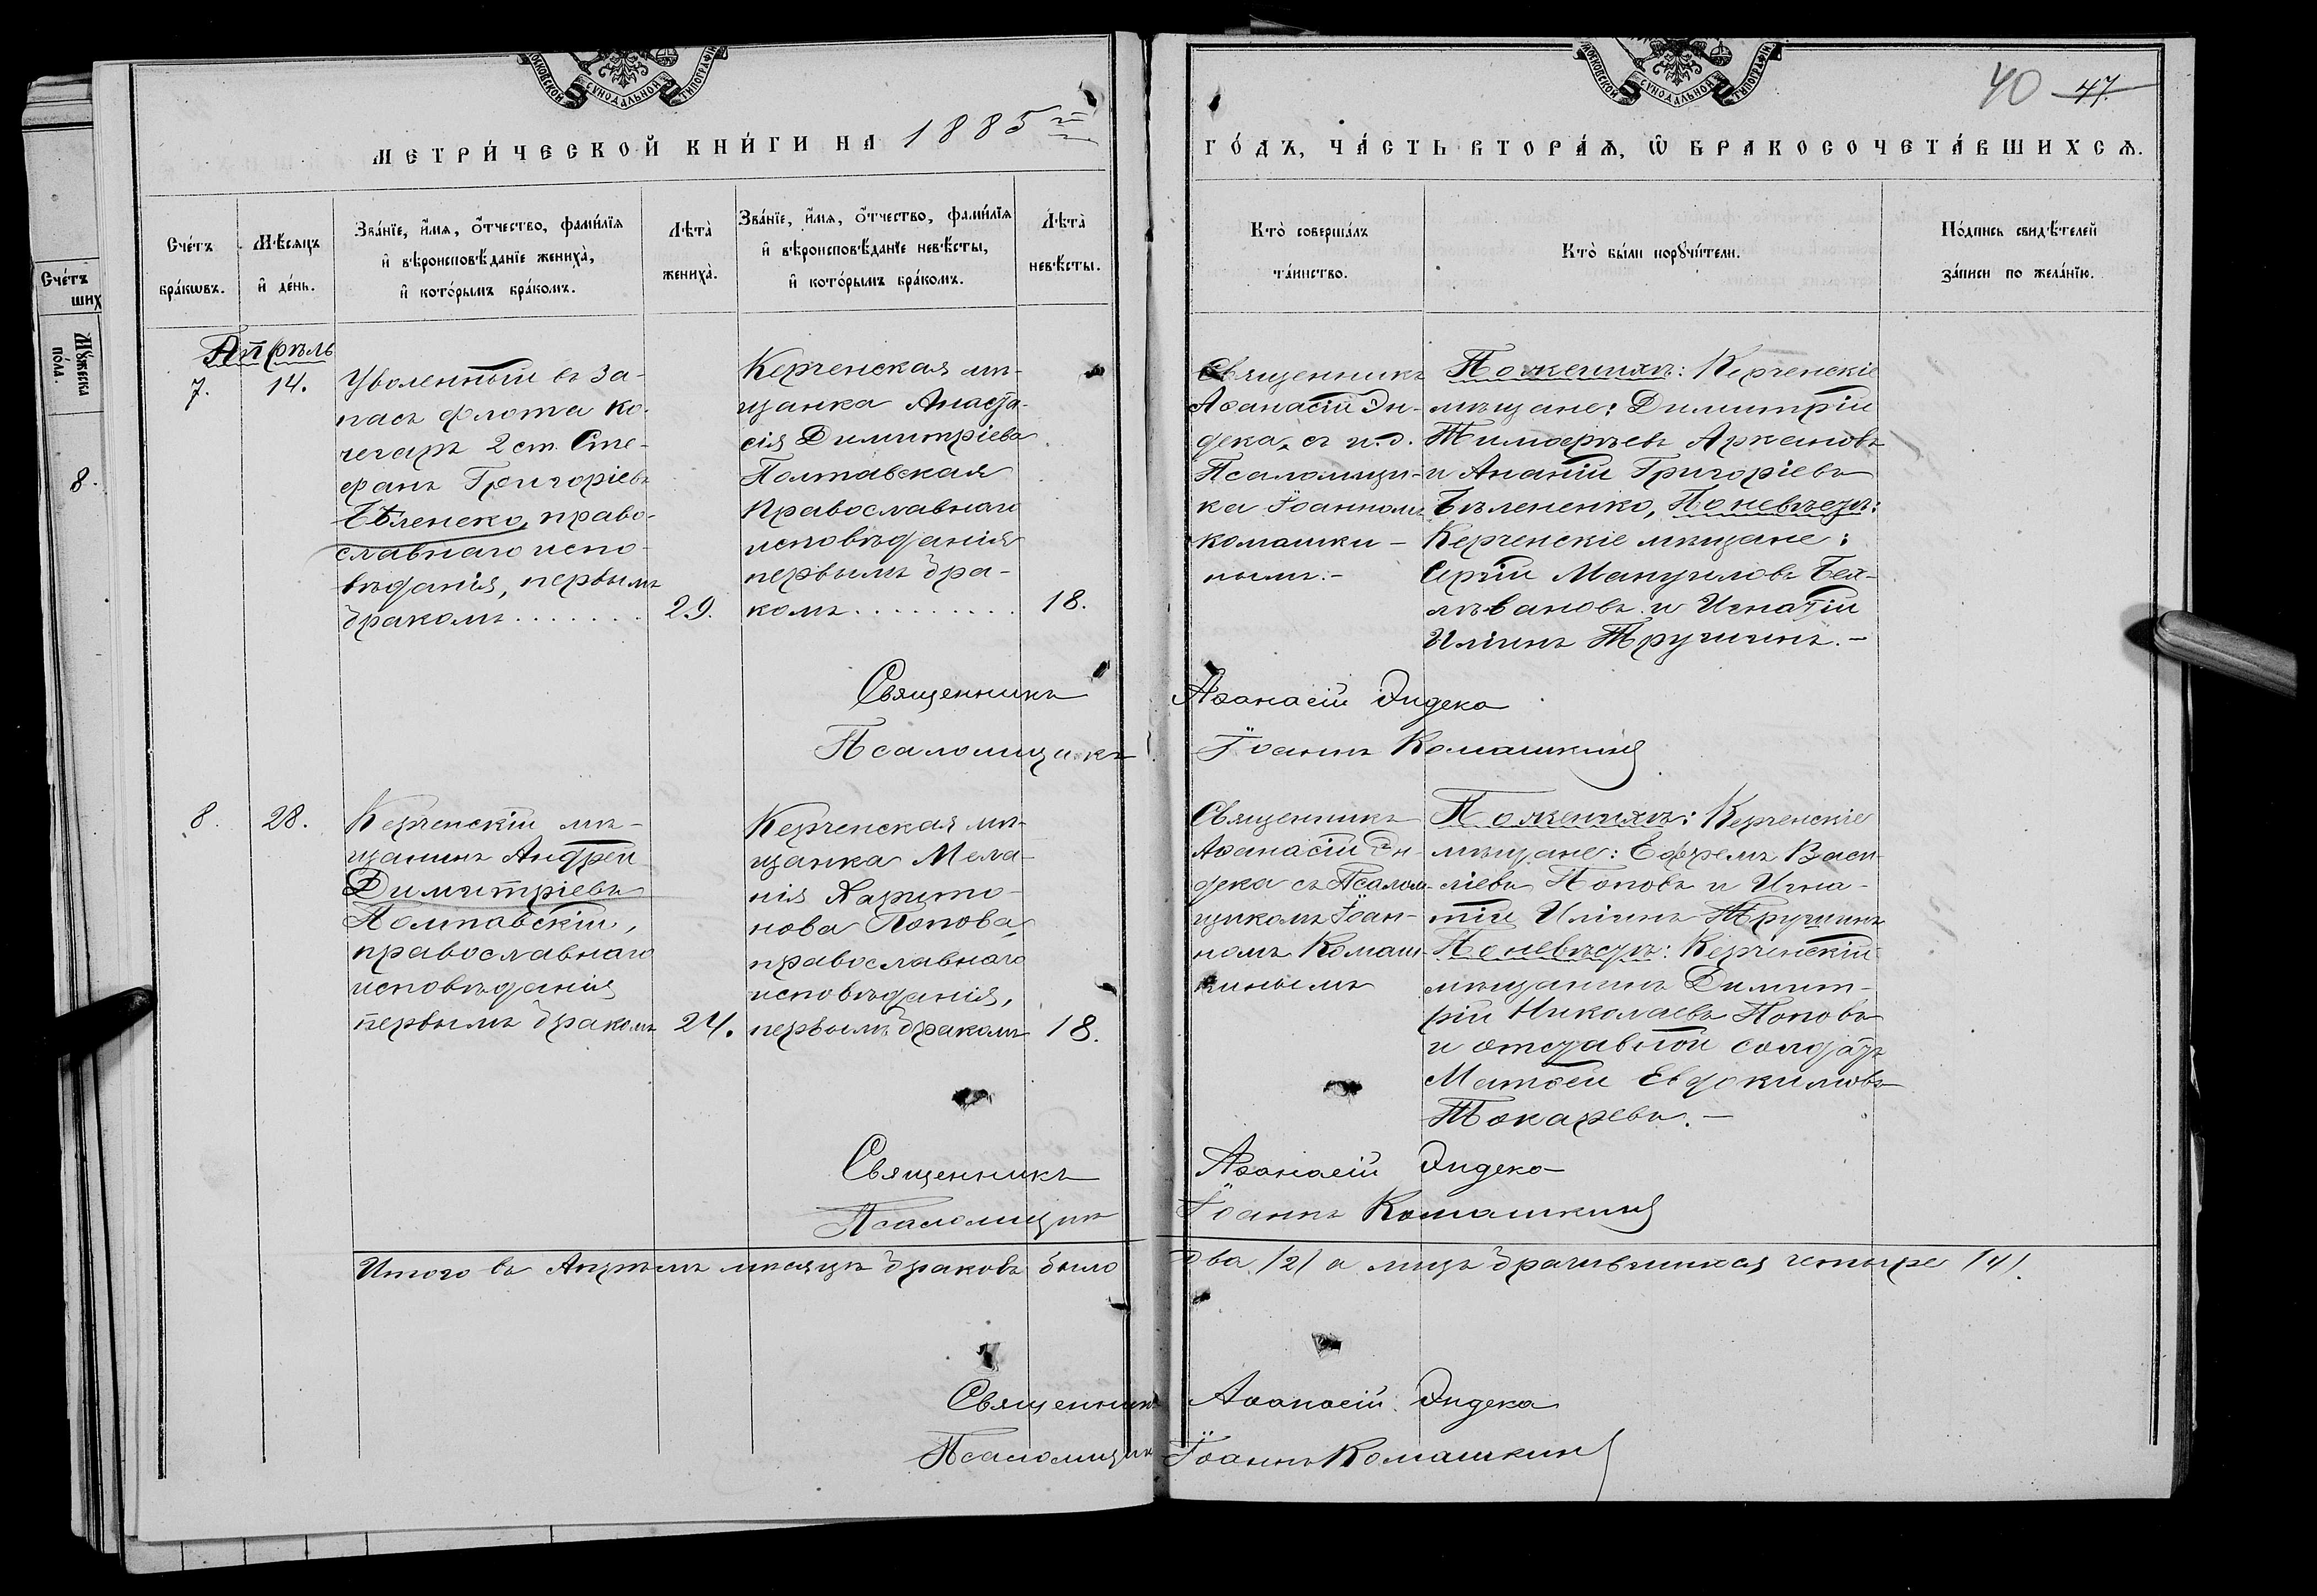 МОСКОВСКОЙ СѴНОДАЛЬНОЙ ТИПОГРАФІИ
МОСКОВСКОЙ СѴНОДАЛЬНОЙ ТИПОГРАФІИ
40 47.
МЕТРИ́ЧЕСКОЙ КНИ́ГИ НА 1885й
ГО́ДЪ, ЧА́СТЬ ВТОРА́Ѧ, Ѡ БРАКОСОЧЕТА́ВШИХСѦ.
Сче́тъ
бра́кѡвъ.
Мѣ́сяцъ
и҆ де́нь.
Зва́нїе, и҆́мѧ, ѻ҆́тчество, фами́лїѧ
и҆ вѣроисповѣ́данїе жениха̀,
и҆ кото́рымъ бра́комъ.
Лѣта̀
жениха̀.
Зва́нїе, и҆́мѧ, ѻ҆́тчество, фами́лїѧ
и҆ вѣроисповѣ́данїе невѣ́сты,
и҆ кото́рымъ бра́комъ.
Лѣта̀
невѣ́сты.
Кто̀ соверша́лъ
та́инство.
Кто̀ бы́ли порꙋчи́тели.
По́дпись свидѣ́телей
за́писи по жела́нїю.
Сче́тъ
ших
Мꙋ́жеска
по́ла.
8.
Апрѣль
7.
14.
Уволенный въ за-
пасъ флота ко-
чегаръ 2 ст. Сте-
фанъ Григоріевъ
Бѣленско, право-
славнаго испо-
вѣданія, первымъ
бракомъ . . . . . . .
29.
Керченская мѣ-
щанка Анаста-
сія Димитріева
Полтавская
Православнаго
исповѣданія
первымъ бра-
комъ . . . . . . . . .
18.
Священникъ
Аѳанасій Эн-
дека, съ и.д.
Псаломщи-
ка Іоанномъ
Комашки-
нымъ.-
По женихѣ: Керченскіе
мѣщане: Димитрій
Тимоѳѣевъ Аркановъ
и Ананій Григоріевъ
Бѣлененко, По невѣстѣ:
Керченскіе мѣщане:
Сергій Мануиловъ
и Игнатій
Иліинъ Тручинъ.-
Священникъ Аѳанасій Эндека
Псаломщикъ Іоаннъ Комашкинъ
8.
28.
Керченскій мѣ-
щанинъ Андрей
Димитріевъ
Полтавскій,
православнаго
исповѣданія
первымъ бракомъ
24.
Керченская мѣ-
щанка Мела-
нія Харито-
нова Попова,
православнаго
исповѣданія,
первымъ бракомъ
18.
Священникъ
Аѳанасій Эн-
дека съ Псалом-
щикомъ Іоан-
номъ Комаш-
кинымъ
По женихѣ: Керченскіе
мѣщане: Ефремъ Васи-
ліевъ Поповъ и Игна-
тій Иліинъ Тручинъ
По невѣстѣ: Керченскій
мѣщанинъ Димит-
рій Николаевъ Поповъ
и отставной солдатъ
Матѳей Евдокимовъ
Токаревъ.-
Священникъ Аѳанасій Эндека
Псаломщикъ Іоаннъ Комашкинъ
Итого въ Апрѣлѣ мѣсяцѣ браковъ было два /2/ а лицъ брачившихся четыре /4/.
Священникъ Аѳанасій Эндека
Псаломщикъ Іоаннъ Комашкинъ